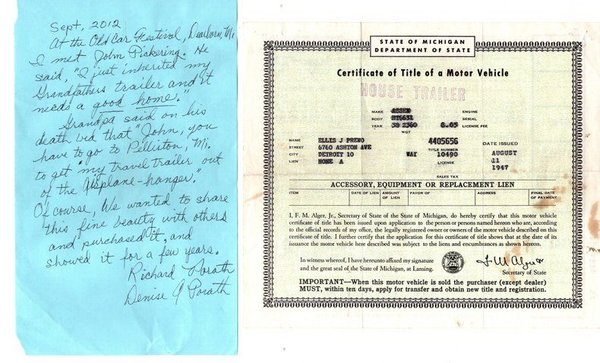 Sept, 2012
At the Old Car Festival, Dearborn, Mi.
I met John Pickering. He
said, "I just inherited my
Grandfathers trailer and it
needs a good home."
Grandpa said on his
death bed that "John, you
have to go to Pelliston, Mi.
to get my travel trailer out
of the airplane-hanger."
Of course, We wanted to share
this fine beauty with others
and purchased it, and
showed it for a few years.
Richard Porath
Denise A Porath
STATE OF MICHIGAN
DEPARTMENT OF STATE
Certificate of Title of a Motor Vehicle
HOUSE TRAILER
MAKE ENGINE
BODY SERIAL
YEAR 38 2360 8.05 LICENSE FEE
WGT
NAME ELLIS J PREMO 4405656 DATE ISSUED
STREET 6740 ASHTON AVE TITLE NUMBER
CITY DETROIT 10 WAY 10490 AUGUST
LIEN NONE A LICENSE 11
SALES TAX 1947
ACCESSORY, EQUIPMENT OR REPLACEMENT LIEN
ITEM DATE OF LIEN AMOUNT OF LIEN FAVOR OF ADDRESS FINAL DATE OF PAYMENT
I, F. M. Alger, Jr., Secretary of State of the State of Michigan, do hereby certify that this motor vehicle
certificate of title has been issued upon application to the person or persons named hereon who are, according
to the official records of my office, the legally registered owner or owners of the vehicle described on this
certificate of title. I further certify that the application for this certificate of title shows that at the date of its
issuance the motor vehicle here described was subject to the liens and encumbrances as shown hereon.
In witness whereof, I have hereunto affixed my signature
and the great seal of the State of Michigan, at Lansing.
F M Alger Jr
Secretary of State
IMPORTANT—When this motor vehicle is sold the purchaser (except dealer)
MUST, within ten days, apply for transfer and obtain new title and registration.